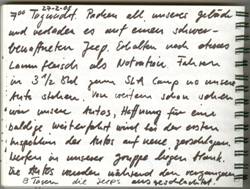 27-2-01
7⁰⁰ Tagwacht. Packen all unseres gebäck
und verladen es auf einen schwer-
bewaffneten Jeep. Erhalten noch etwas
Lammfleisch als Notration. Fahren
in 3 ½ Std zum Camp wo unsere
Auto stehen. Von weitem schon sehen
wir unsere Autos, Hoffnung für eine
baldige weiterfahrt wird bei der ersten
Inspektion der Autos auf neue, zerschlagen.
liefen in unserer gruppe liegen krank.
Die Autos wurden während den vergangenen
8 Tagen die Jeeps ausgeschlachtet.